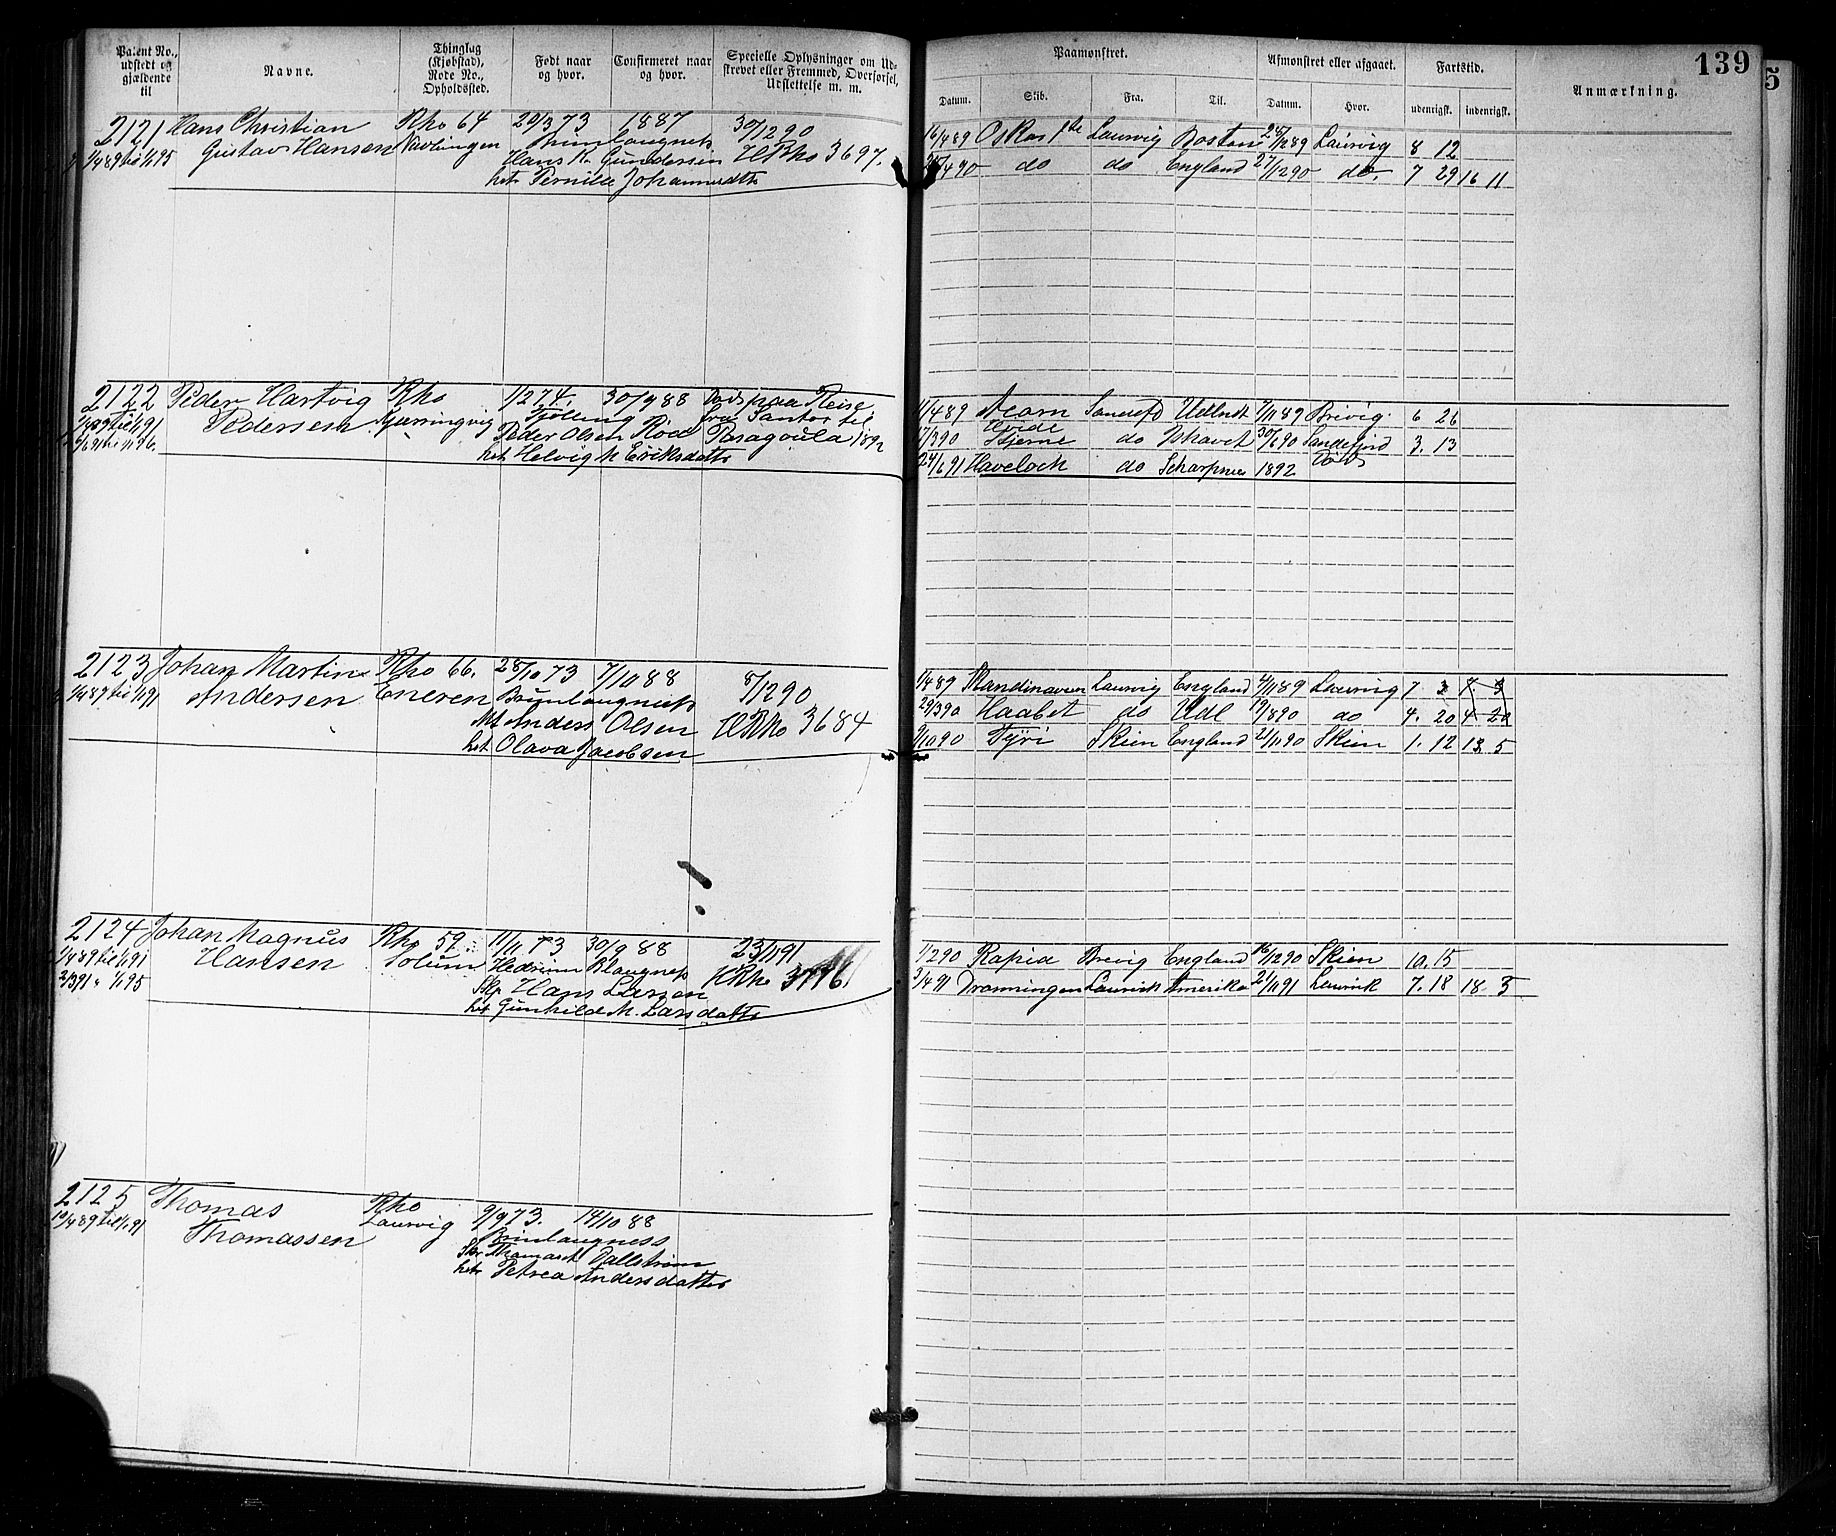 139
5
Patent No., udstedt og gjældende til
Navne.
Thinglag (Kjøbstad), Rode No., Opholdssted.
Født naar og hvor.
Confirmeret naar og hvor.
Specielle Oplysninger om Udskrevet eller Fremmed, Overførsel, Udslettelse m. m.
Paamønstret.
Afmønstret eller afgaaet.
Fartstid.
Anmærkning.
Datum. Skib. Fra. Til. Datum. Hvor. udenrigsk. indenrigsk.
2121 Hans Christian Rho 64 29/3 73 1887 30/12 90
1/4 89 til 1/1 95 Gustav Hansen Brunlangnes
Hans Kr Gundersen HRho 3697.
het Pernille
16/4 89 Oskar Laurvig Boston 28/12 89 Laurvig 8 12
4 90 do do England 27/12 90 do. 7 29 16 11
2122 Peder Hartvig Rho 1/2 74. 30/9 88 Død paa Reise
til 1/1 91 Pedersen Tjølling fra Santos til
Peder Olsen Rød 1892
het Helvig M Eriksdatter
11/4 89 Acorn 7/11 89 Brevig. 6 26
Hvide
17/3 90 Stjerne do Ishavet 30/6 90 Sandefjord 3. 13
24/6 91 Havelock do 1892 Død
2123 Johan Martin Rho 66. 28/10 73 7/10 88 8/12 90
1/4 89 til 1/1 91 Andersen Eneren Brunlangnes
Mt Anders Olsen HRho 3684
het Olava Jacobsen
1/4 89 Skandinaven Laurvig England 4/11 89 Laurvig 7 3 7. 3
29/3 90 Haabet do Udl 19/8 90 do 4. 20 4 20
9/10 90 Tyri Skien England 21/11 90 Skien 1. 12 13 5
2124 Johan Magnus Rho 59 11/11 73 30/9 88 23/11 91
1/4 89 til 1/1 91 Hansen Solum Hedrum Blangnes HRho
2/3 91 " 1/1 95 Hans Larsen
het Gunhilde M. Larsdatter
1/2 90 Rapid Brevig England 16/12 90 Skien 10. 15
3/4 91 Dronningen Laurvik Amerika 21/11 91 Laurvik 7. 18 18 3
2125 Thomas Rho 9/9 73. 14/10 88
10/4 89 til 1/1 91 Thomassen Laurvig Brunlangness
Dallstrøm
het Petrea Andersdatter